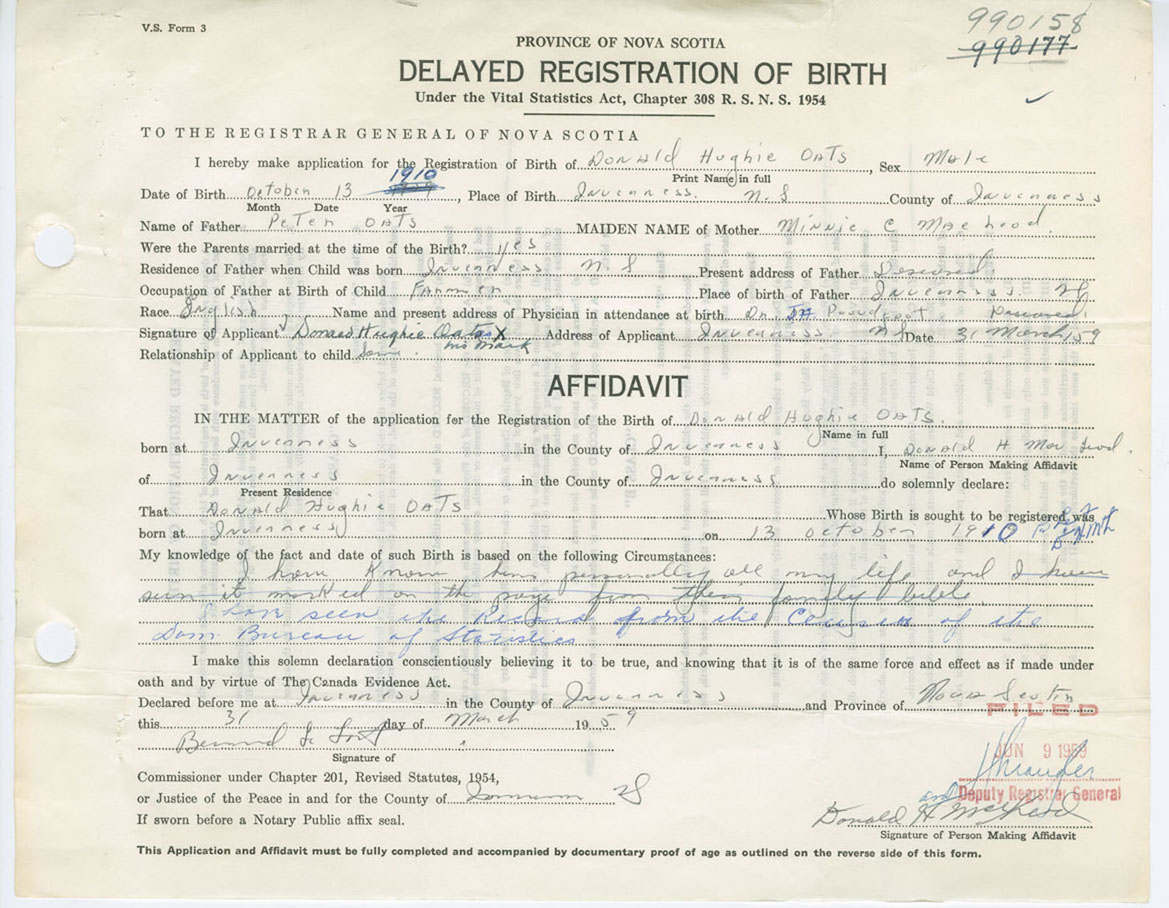 V.S. Form 3
990158
990177
PROVINCE OF NOVA SCOTIA
DELAYED REGISTRATION OF BIRTH
Under the Vital Statistics Act, Chapter 308 R. S. N. S. 1954
TO THE REGISTRAR GENERAL OF NOVA SCOTIA
I hereby make application for the Registration of Birth of Donald Hughie Oats, Sex Male
Print Name in full
1910
Date of Birth October 13, Place of Birth Inverness. N. S County of Inverness
Month Date Year
Name of Father Peter Oats MAIDEN NAME of Mother Minnie C
Were the Parents married at the time of the Birth? yes
Residence of Father when Child was born Inverness N. S Present address of Father Deceased
Occupation of Father at Birth of Child Farmer Place of birth of Father Inverness. NS
Race English Name and present address of Physician in attendance at birth Dr. Deceased
Signature of Applicant Donald Hughie Oats X Address of Applicant Inverness NS Date 31 March/59
his mark
Relationship of Applicant to child Same.
AFFIDAVIT
IN THE MATTER of the application for the Registration of the Birth of Donald Hughie Oats.
Name in full
born at Inverness in the County of Inverness I, Donald H
Name of Person Making Affidavit
of Inverness in the County of Inverness do solemnly declare:
Present Residence
That Donald Hughie Oats Whose Birth is sought to be registered was
born at Inverness on 13 October 1910
My knowledge of the fact and date of such Birth is based on the following Circumstances:
I have known him personally all my life and I have
seen it marked on the page from their family bible.
I have seen the Record from the Census of the
Dom Bureau of Statistics
I make this solemn declaration conscientiously believing it to be true, and knowing that it is of the same force and effect as if made under
oath and by virtue of The Canada Evidence Act.
Declared before me at Inverness in the County of Inverness and Province of Nova Scotia
FILED
this 31 day of March 1959
JUN 9 1959
Signature of
Commissioner under Chapter 201, Revised Statutes, 1954,
Deputy Registrar General
or Justice of the Peace in and for the County of Inverness NS
If sworn before a Notary Public affix seal.
Donald H
Signature of Person Making Affidavit
This Application and Affidavit must be fully completed and accompanied by documentary proof of age as outlined on the reverse side of this form.